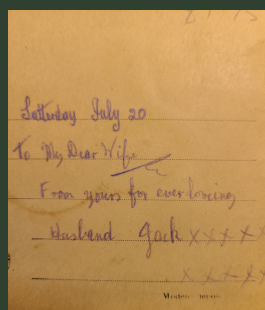 Satturday July 20
To My Dear Wife
From yours for ever loving
Husband Jack xxxx
xxxxx